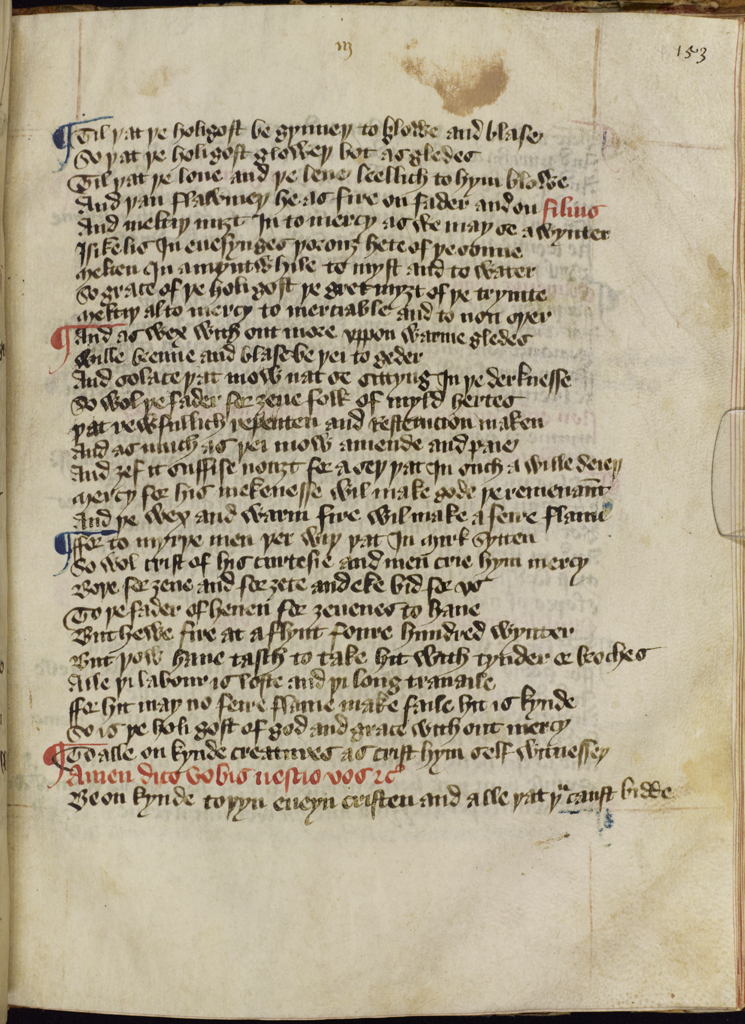 m
153
Til þat þe holigost be gynneþ to glowe and blase
So þat þe holigost gloweþ bot as gledes
Til þat þe loue and þe leue leellich to hym blowe
And þan fflawmeþ he as fire on fader and on filius
And meltiþ miȝt In to mercy as we may se a wynter
Isikelis In euesynges þorouȝ hete of þe sonne
Melten In a mynt while to myst and to water
So grace of þe holi gost þe gret miȝt of þe trynite
Meltiþ al to mercy to merciable and to non oþer
And as wex with out more vppon warme gledes
Wille brenne and blase be þei to geder
And solace þat mow nat se sittyng In þe derknesse
So wol þe fader for ȝeue folk of myld hertes
þat rewfullich repenten and restitucion maken
And as much as þei mow amende and paie
And ȝef it suffise nouȝt for a sep þat In such a wille deieþ
Mercy for his mekenesse wil make gode þe remenant
And þe wex and warm fire wil make a feire flame
ffor to myrþe men þer wiþ þat In mirk sytten
So wol crist of his curtesie and men crie hym mercy
Boþe for ȝeue and for ȝete and eke bid for vs
To þe fader of heuen for ȝeuenes to haue
But hewe fire at a flynt foure hundred wynter
But þow haue tasch to take hit with tynder or broches
Alle þi labour is loste and þi long trauaile
ffor hit may no feire flame make faile hit is kynde
So is þe holi gost of god and grace with out mercy
To alle on kynde creatures as crist hym self witnesseþ
Amen dico vobis nescio vos ⁊c
Be on kynde to þyn eueyn cristen and alle þat þu canst bidde